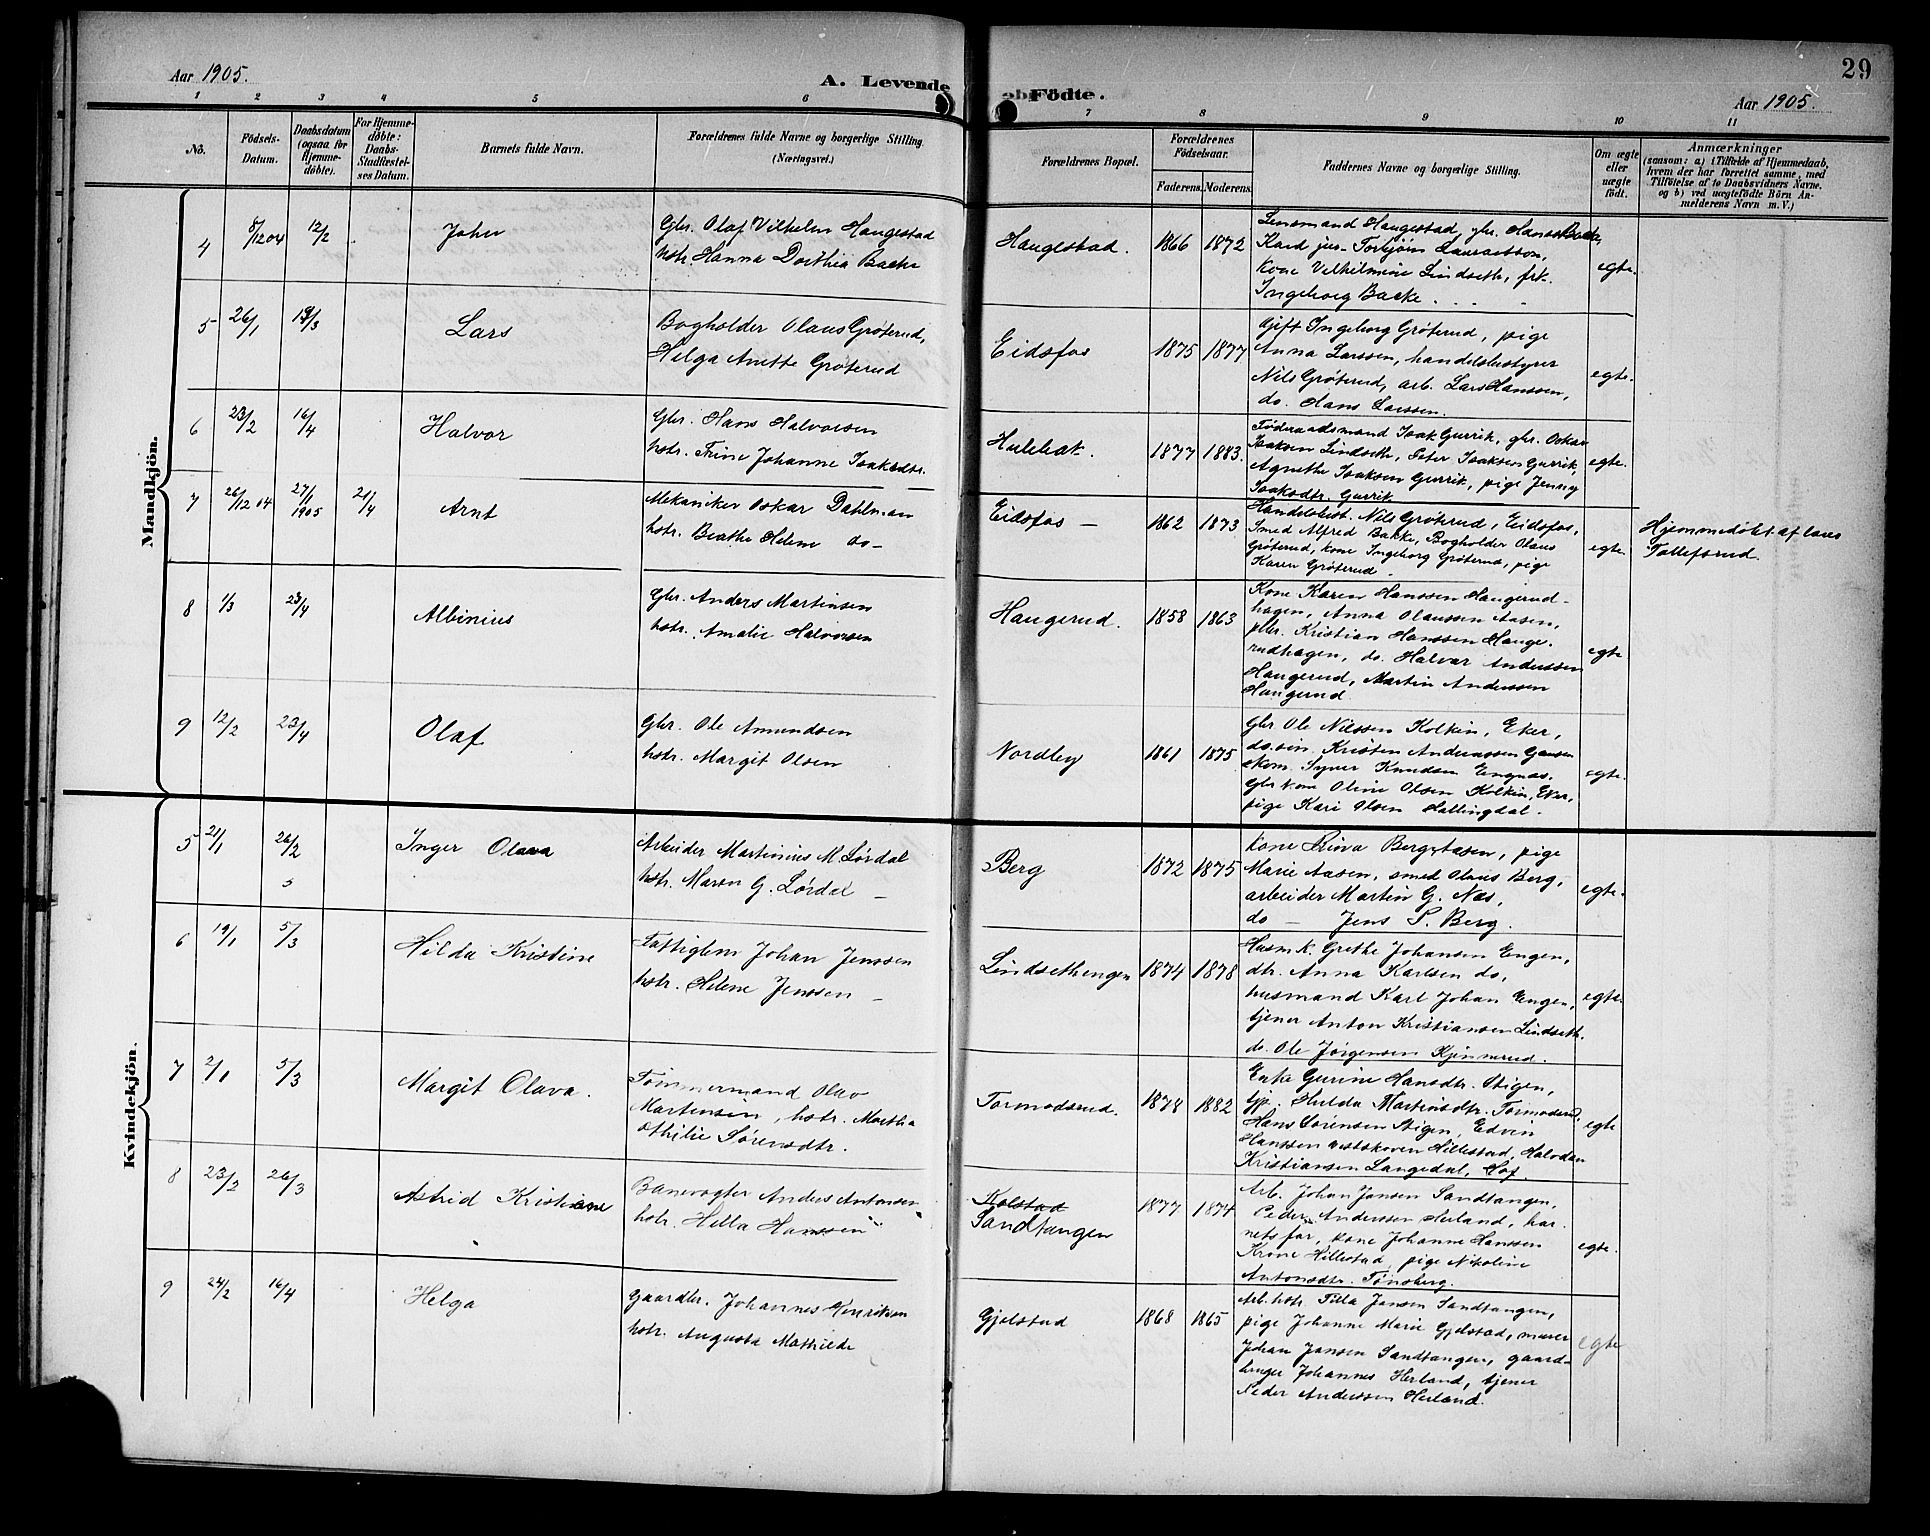 Aar 1905.
A. Levende Födte.
29
Aar 1905.
1 2 3 4 5 6 7 8 9 10 11
No.
Födsels-
Datum.
Daabsdatum
(ogsaa for
Hjemme-
döbte).
For Hjemme-
döbte:
Daabs-
Stadfæstel-
ses Datum.
Barnets fulde Navn.
Forældrenes fulde Navne og borgerlige Stilling.
(Næringsvei.)
Forældrenes Bopæl.
Forældrenes
Födselsaar.
Faderens. Moderens.
Faddernes Navne og borgerlige Stilling.
Om ægte
eller
uægte
födt.
Anmærkninger
(saasom: a) i Tilfælde af Hjemmedaab,
hvem der har forrettet samme, med
Tilföielse af to Daabsvidners Navne.
og b) ved uægtefödte Börn An-
melderens Navn m. V.)
Mandkjön.
4 8/12 04 12/2 John
Gbr. Olaf Vilhelm Haugestad
hstr. Hanna Dorthea Backe
Haugestad. 1866 1872
Lensmand Haugestad, gbr. Hans Backe,
Kand jur. Torbjørn Lauraetson,
kone Vilhelmine Lindseth, frk.
Ingeborg Backe.
egte.
5 26/1 19/3 Lars
Bogholder Olaus Grøterud,
Helga Anette Grøterud
Eidsfos 1875 1877
Gift Ingeborg Grøterud, pige
Anna Larssen, handelsbestyrer
Nils Grøterud, arb. Lars Hanssen,
do. Hans Larssen.
egte.
6 23/2 16/4 Halvor
Gbr. Hans Halvorsen
hstr. Trine Johanne Isaksdtr.
Hulebak. 1877 1883.
Föderaadsmand Isak Gurrik, gbr. Oskar
Isaksen Lindseth, Peter Isaksen Gurrik,
Agnethe Isaksen Gurrik, pige Jenny
Isaksdtr. Gurrik.
egte.
7 26/12 04 27/1 1905 21/4 Arnt
Mekaniker Oskar Dahlman
hstr. Beathe Helene do-
Eidsfos - 1862 1873
Handelsbest. Nils Grøterud, Eidsfos,
Smed Alfred Bakke, Bogholder Olaus
Grøterud, kone Ingeborg Grøterud, pige
Karen Grøterud.
egte
Hjemmedøbt af Lars
Tollefsrud.
8 1/3 23/4 Albinius
Gbr. Anders Martinsen
hstr. Amalie Halvorsen
Haugerud. 1858 1863
Kone Karen Hanssen Haugerud-
hagen, Anna Olaussen Aasen,
pbr. Kristian Hanssen Hauge-
rudhagen, do. Halvar Anderssen
Haugerud, Martin Anderssen
Haugerud
egte
9 12/2 23/4 Olaf
Gbr. Ole Amundsen
hstr. Margit Olsen
Nordby 1861 1875
Gbr Ole Nilssen Kolkin, Eker,
do. sön. Kristen Anderssen Gausen
skom. Syver Knudsen Engnæs.
Gbr kone Oline Olsen Kolkin, Eker,
pige Kari Olsen Hallingdal.
egte.
Kvindekjön.
5 21/1 26/2 Inger Olava
Arbeider Martinius M. Lørdal
hstr. Maren G. Lørdal -
Berg 1872 1875
Kone Rina Bergstasen, pige
Marie Aasen, smed Olaus Berg,
arbeider Martin G. Næs,
do - Jens S. Berg.
egte.
6 19/1 5/3 Hilda Kristine
Fattiglem Johan Jenssen
hstr. Helene Jenssen -
Lindsethengen 1874 1878
Husm.k. Grethe Johansen Engen,
dtr. Anna Karlsen do,
husmand Karl Johan Engen,
tjener Anton Kristiansen Lindseth.
do. Ole Jørgensen Kjennerud.
egte
7 2/1 5/3 Margit Olava.
Tömmermand Olav
Martensen, hstr. Martha
Othilie Sørensdtr.
Tormodsrud. 1878 1882
Enke Gurine Hansdtr. Stigen,
Gp. Hulda Martinsdtr. Tormodsrud,
Hans Sørensen Stigen, Edvin
Hanssen Vestskoven Hillestad, Halvdan
Kristiansen Langedal, Hof.
egte
8 23/2 26/3 Astrid Kristiane
Banevogter Anders Antonsen
hstr. Hella Hanssen
Kolstad
Sandtangen 1877 1874
Arb. Johan Jansen Sandtangen,
Peder Anderssen Herland, bar-
nets far, kone Johanne Hanssen
Krone Hillestad, pige Nikoline
Antonsdtr. Tønsberg.
egte.
9 24/2 16/4 Helga
Gaardbr. Johannes Henriksen
hstr. Augusta Mathilde
Gjelstad 1868 1865
Arb. hstr. Tilla Jansen Sandtangen,
pige Johanne Marie Gjelstad, murer
Johan Jansen Sandtangen, gaard-
bruger Johannes Herland, tjener
Peder Anderssen Herland.
egte